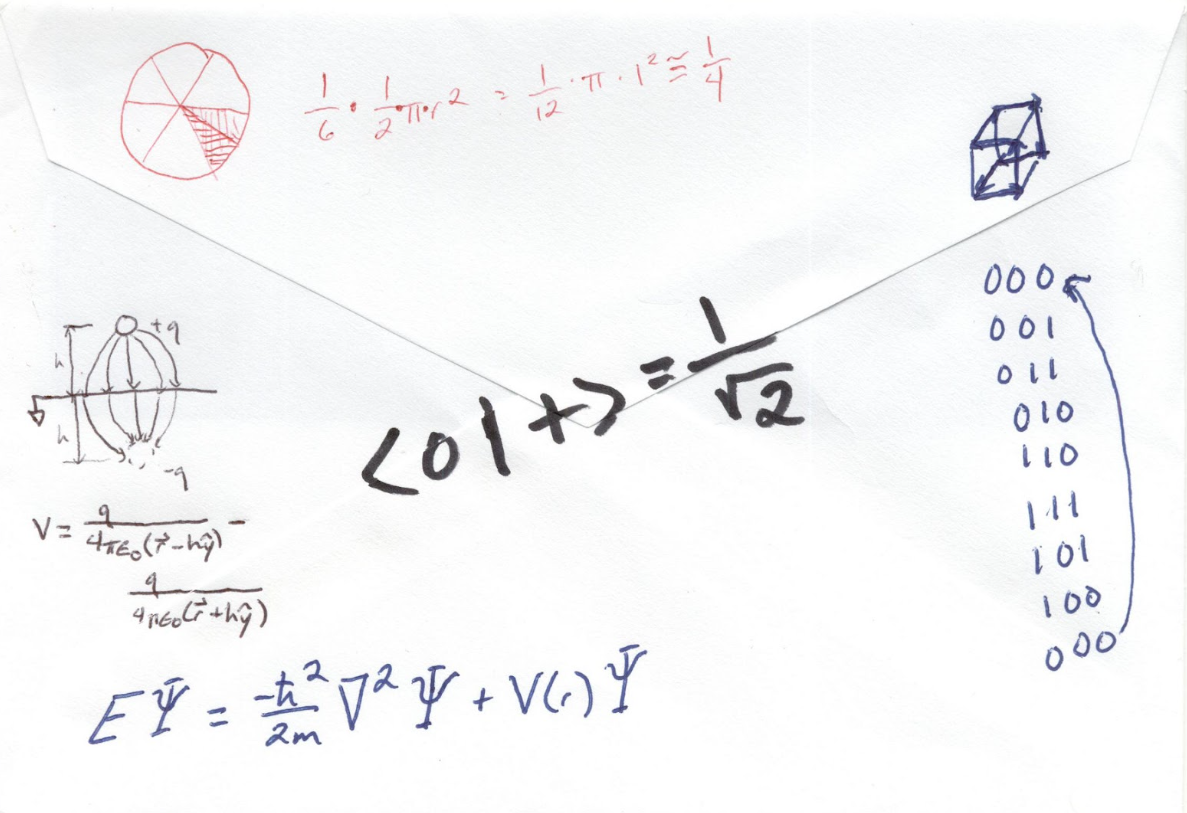 1/6 · 1/2 · π · r² = 1/12 · π · 1² ≅ 1/4
+q
h
h
-q
V = q/(4πε₀(r⃗-hŷ)) -
q/(4πε₀(r⃗+hŷ))
<0|+> = 1/√2
000
001
011
010
110
111
101
100
000
EΨ = -ħ²/2m ∇²Ψ + V(r)Ψ